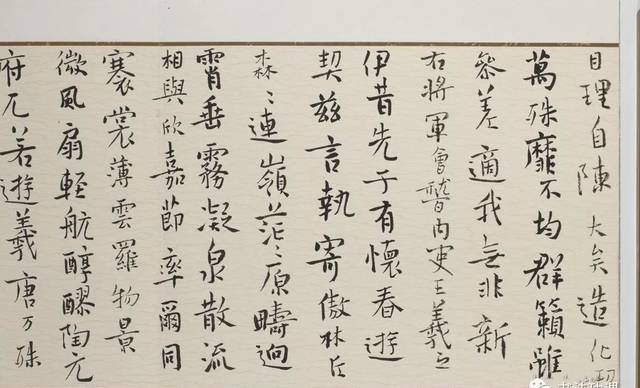 目理自陳大矣造化
萬殊靡不均群籟雖
參差適我無非新
右將軍會稽内史王羲之
伊昔先子有懷春遊
契兹言執寄傲林丘
森〻連嶺茫〻原疇迥
霄垂霧凝泉散流
相與欣嘉節率爾同
褰裳薄雲羅物景
微風扇輕航醇醪陶元
府兀若遊羲唐万殊